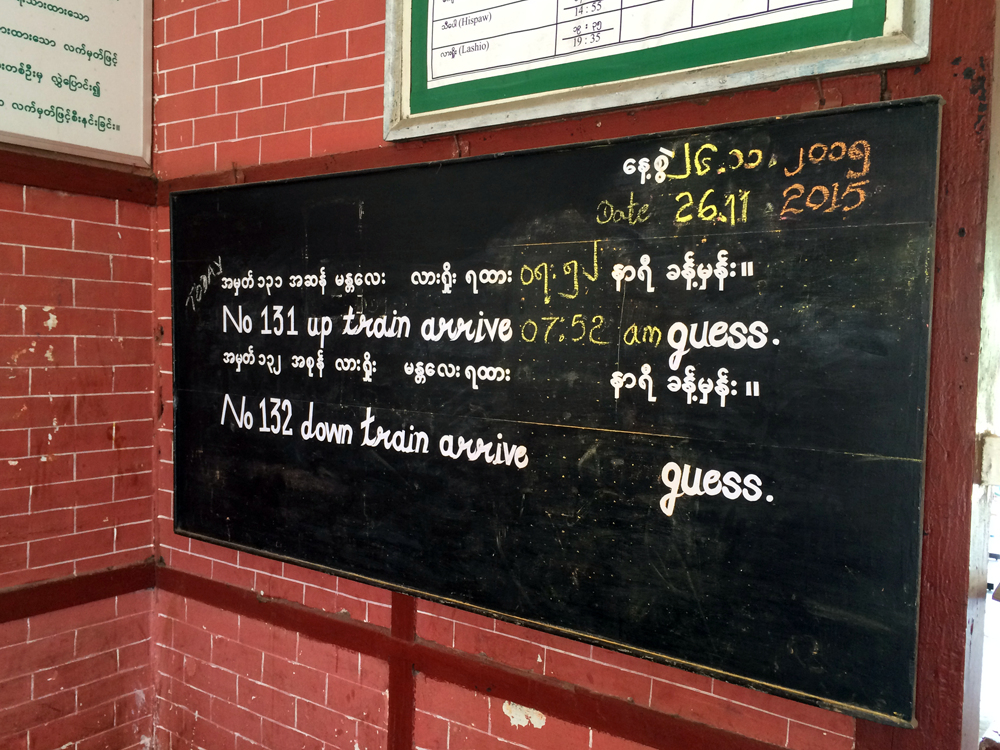 လက်မှတ်ဖြင့်
လွှဲပြောင်း၍
လက်မှတ်ဖြင့်စီးနင်းခြင်း။
14:55
သီပေါ (Hispaw)
၁၉:၃၅
လားရှိုး (Lashio)
19:35
နေ့စွဲ ၂၆.၁၁. ၂၀၁၅
Date 26.11 2015
TODAY
အမှတ် ၁၃၁ အဆန် မန္တလေး လားရှိုး ရထား ၀၇:၅၂ နာရီ ခန့်မှန်း။
No 131 up train arrive 07:52 am guess.
အမှတ် ၁၃၂ အစုန် လားရှိုး မန္တလေး ရထား နာရီ ခန့်မှန်း။
No 132 down train arrive guess.